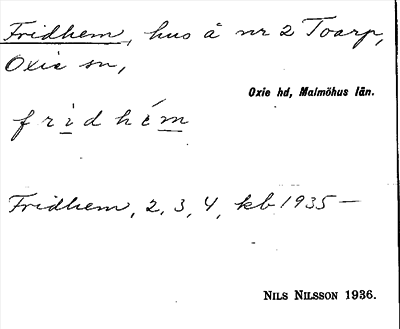 Fridhem, hus å nr 2 Toarp,
Oxie sn,
Oxie hd, Malmöhus län.
f r i d h é m
Fridhem, 2, 3, 4, kb 1935—
NILS NILSSON 1936.